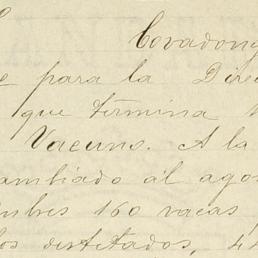 Covadong
para la Direc
que termina
Vacuno. A la
ambiado al agos
mbres 160 vacas
los destetados, 44